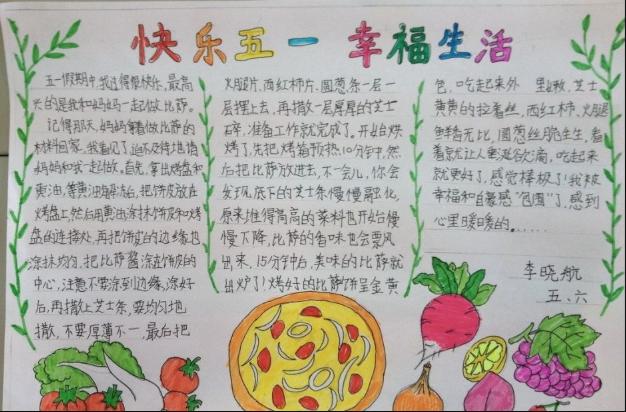 快乐五一 幸福生活
五一假期中,我过得很快乐,最高
兴的是我和妈妈一起做比萨。
记得那天,妈妈拿着做比萨的
材料回家,我看见了迫不及待地请
妈妈和我一起做。首先,拿出烤盘和
黄油,等黄油融化后,把饼皮放在
烤盘上,然后用黄油涂抹饼皮和烤
盘的连接处,再把饼皮的边缘也
涂抹均匀,把比萨酱涂在饼皮的
中心,注意不要涂到边缘,涂好
后,再撒上芝士条,要均匀地
撒,不要厚薄不一,最后把
火腿片、西红柿片、圆葱条一层一
层摆上去,再撒一层厚厚的芝士
碎,准备工作就完成了,开始烘
烤了,先把烤箱预热10分钟,然
后把比萨放进去,不一会儿,你会
发现底下的芝士条慢慢融化,
原来堆得高高的菜料也开始慢
慢下降,比萨的香味也会飘
出来,15分钟后,美味的比萨就
出炉了!烤好的比萨饼呈金黄
色,吃起来外 里嫩,芝士
黄黄的拉着丝,西红柿、火腿
鲜香无比,圆葱丝脆生生,看
着就让人垂涎欲滴,吃起来
就更好了,感觉棒极了!我被
幸福和自豪感“包围”了,感到
心里暖暖的。……
李晓航
五、六